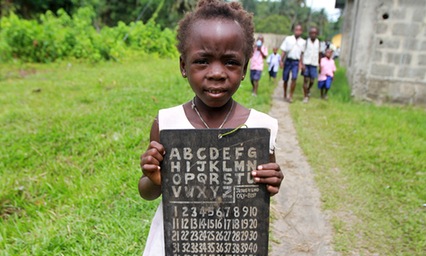 ABCDEFG
HIJKLMN
OPQRSTU
VWXYZ
12345678910
11 12 13 14 15 16 17 18 19 20
21 22 23 24 25 26 27 28 29 30
31 32 33 34 35 36 37 38 39 40